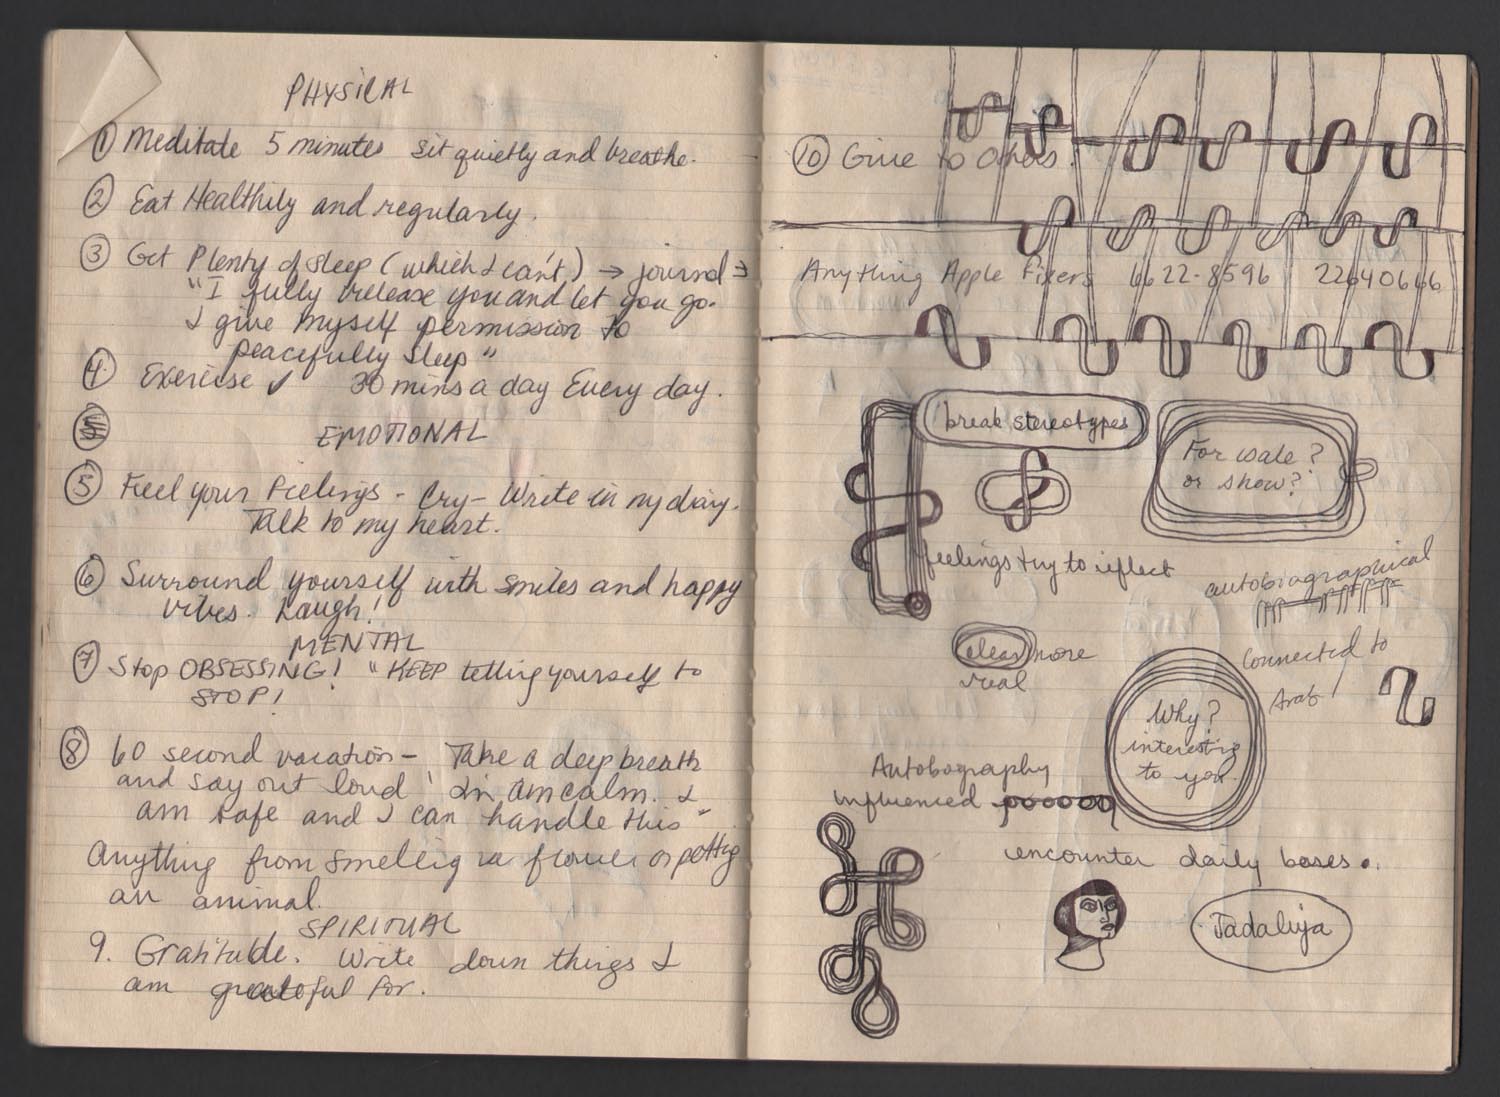 PHYSICAL
① Meditate 5 minutes sit quietly and breathe.
② Eat Healthily and regularly.
③ Get Plenty of sleep (which I can't) → journal →
"I fully release you and let you go.
I give myself permission to
peacefully sleep"
④ Exercise ✓ 30 mins a day Every day.
5
EMOTIONAL
⑤ Feel your Feelings - Cry - Write in my diary.
Talk to my heart.
⑥ Surround yourself with smiles and happy
vibes. Laugh!
MENTAL
⑦ Stop OBSESSING! "KEEP telling yourself to
STOP!
⑧ 60 second vacation - Take a deep breath
and say out loud " I am calm. I
am safe and I can handle this"
Anything from smelling a flower or petting
an animal.
SPIRITUAL
9. Gratitude. Write down things I
am grateful for.
⑩ Give to others.
Anything Apple Fixers 6622-8596 22640666
break stereotypes
For sale?
or show?
feelings try to reflect
autobiographical
clear more
real
Connected to
Arab
Why?
interesting
to you.
Autobography
influenced
encounter daily bases.
Jadaliyya